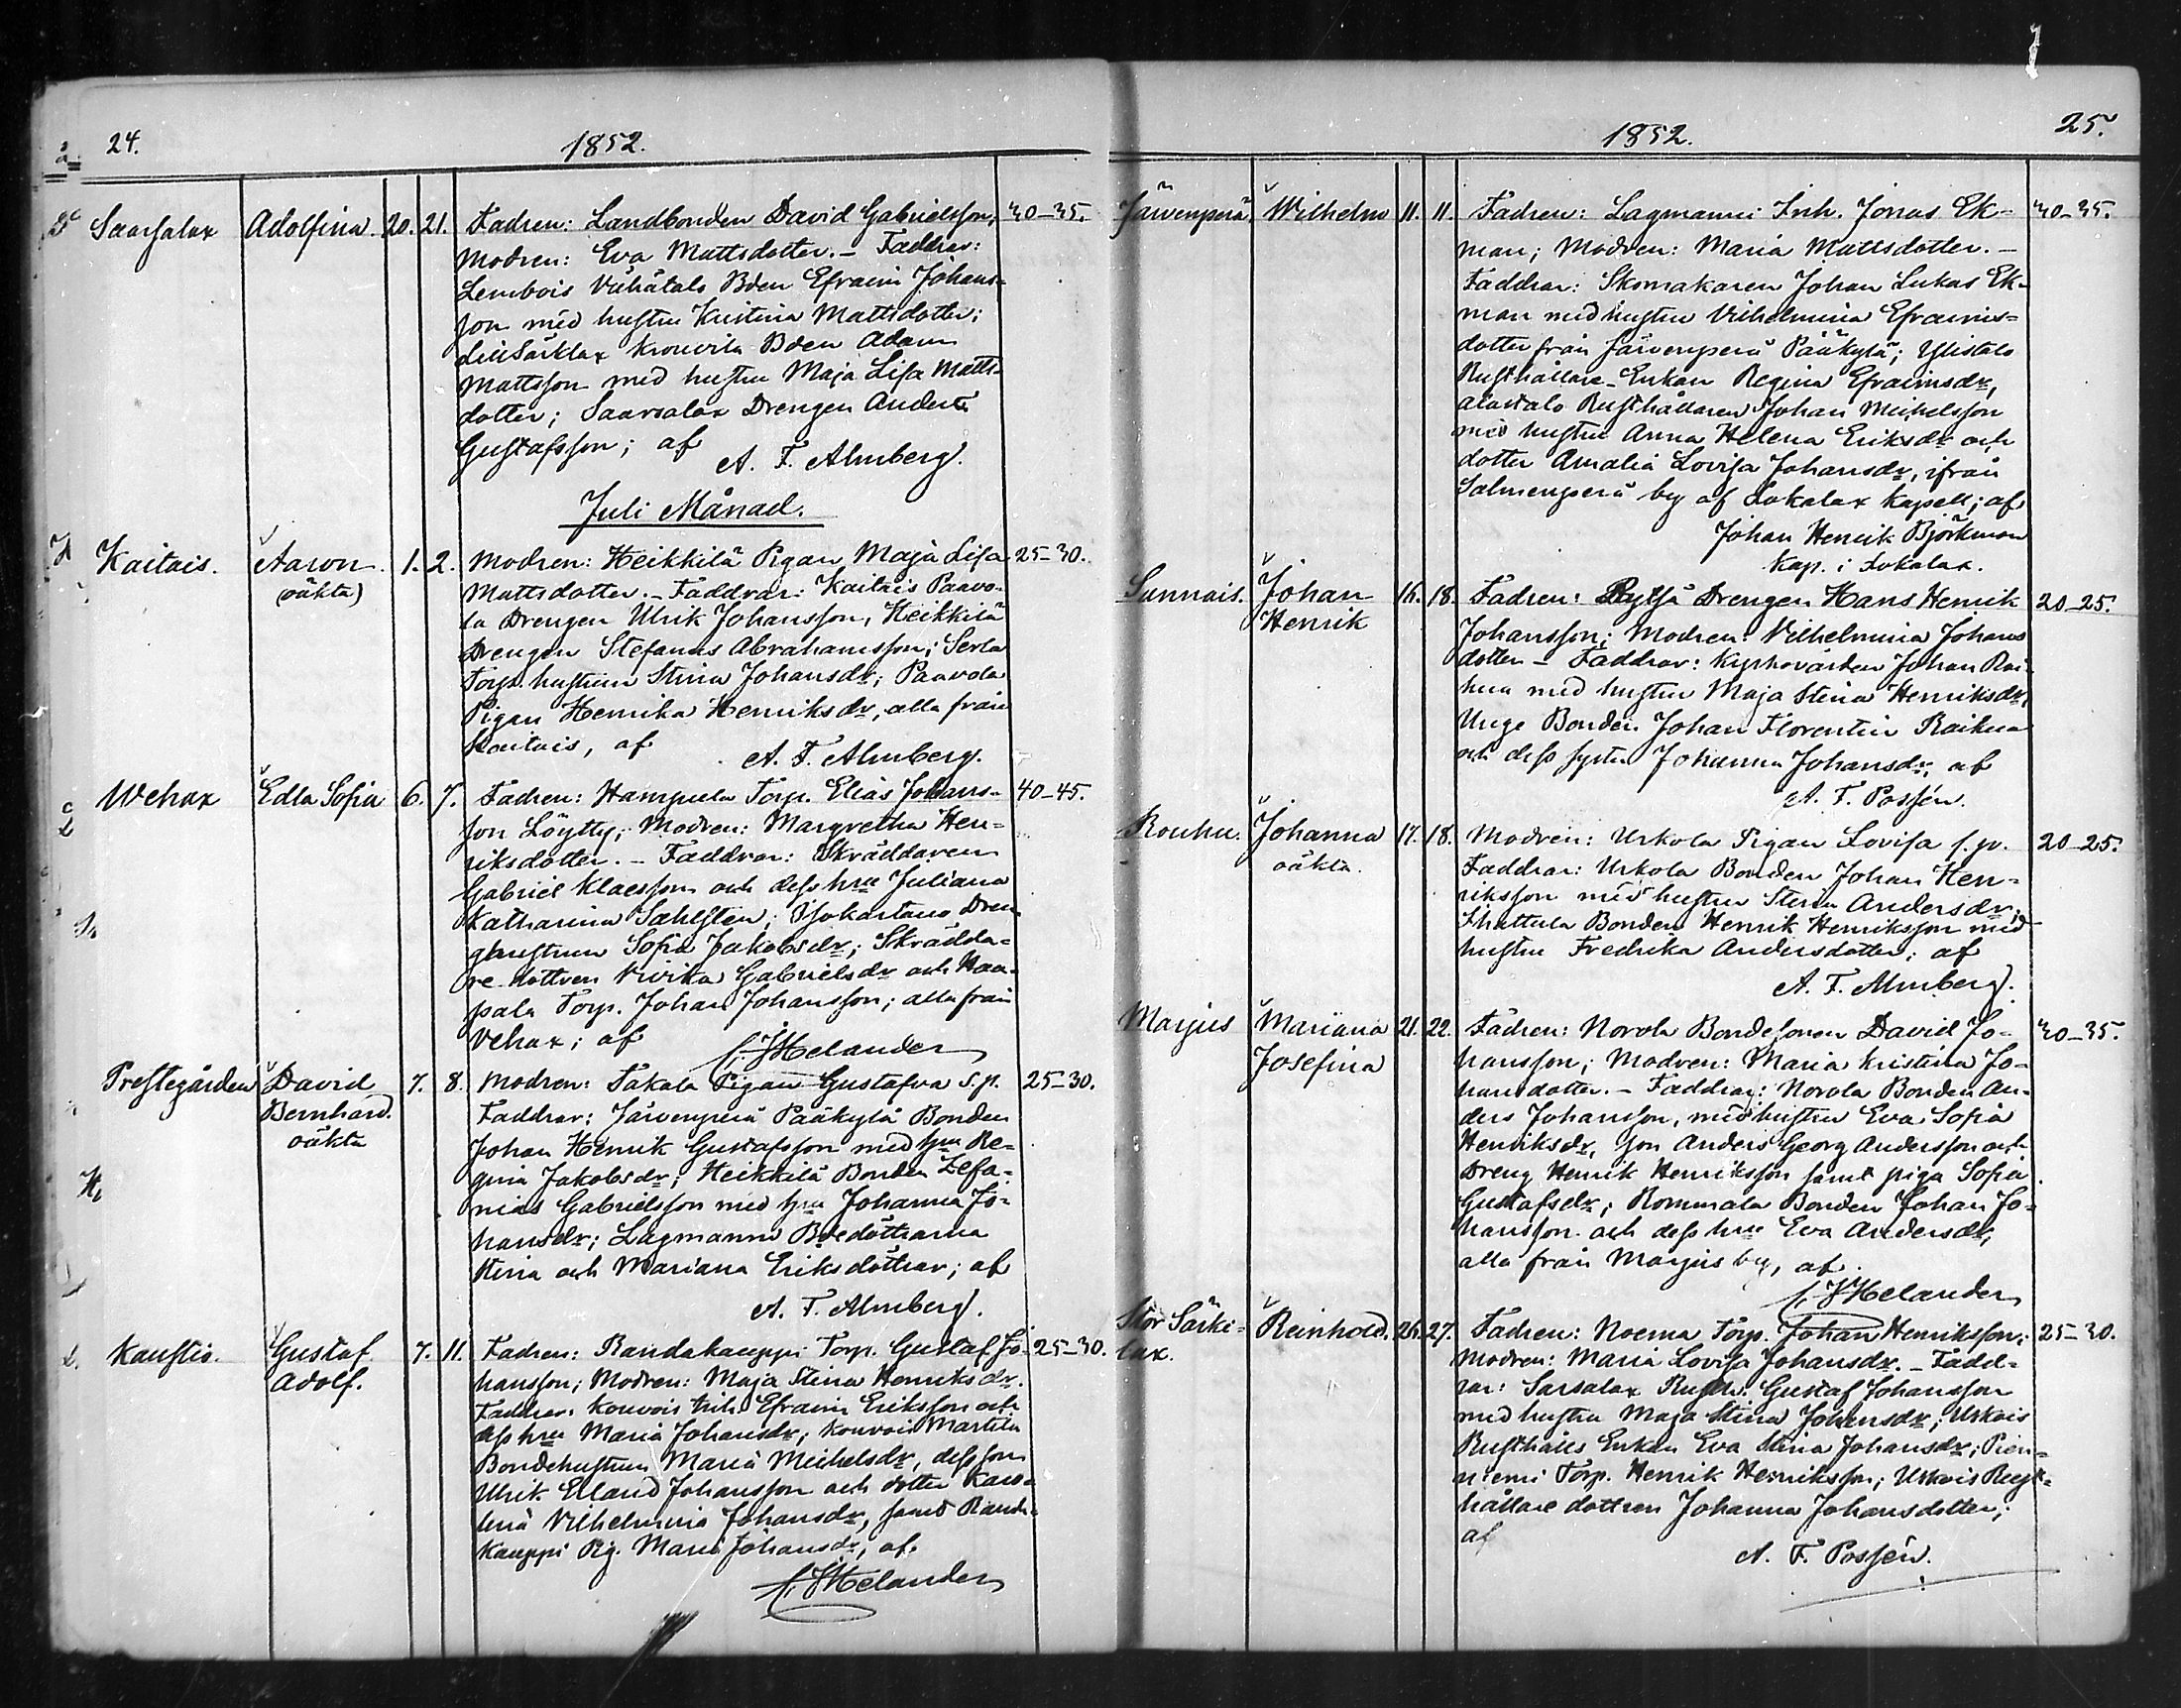 24.
1852.
Saarsalax Adolfina. 20. 21. Fadren: Landbonden David Gabrielsson; 30-35.
Modren: Eva Mattsdotter. - Faddrar:
Lembois Vähätalo Bden Efraim Johans-
son med hustru Kristina Mattsdotter;
LillSärklax Krouvila Bden Adam
Mattsson med hustru Maja Lisa Matts-
dotter; Saarsalax Drengen Anders
Gustafsson; af
A. F. Almberg.
Juli Månad.
Kaitais. Aaron 1. 2. Modren: Heikkilä Pigan Maja Lisa 25-30.
(oäkta) Mattsdotter. - Faddrar: Kaitais Paavo-
la Drengen Ulrik Johansson, Heikkilä
Drengen Stefanus Abrahamsson; Serla
Torp. hustrun Stina Johansdr; Paavola
Pigan Henrika Henriksdr, alla från
Kaitais, af
A. F. Almberg.
Wehax Edla Sofia 6. 7. Fadren: Hampula Torp. Elias Johans- 40-45.
son Löytty; Modren: Margretha Hen-
riksdotter. - Faddrar: Skräddaren
Gabriel Klaesson och dess hru Juliana
Katharina Sahlsten; Isokartano Dren-
ghustrun Sofia Jakobsdr; Skrädda-
re dottren Vivika Gabrielsdr och Haa-
pala Torp. Johan Johansson; alla från
Vehax; af
Helander
Prestegården David 7. 8. Modren: Takala Pigan Gustafva s.p. 25-30.
Bernhard. Faddrar: Järvenperä Pääkylä Bonden
oäkta Johan Henrik Gustafsson med hru Re-
gina Jakobsdr; Heikkilä Bonden Zefa-
nias Gabrielsson med hru Johanna Jo-
hansdr; Lagmanni Bdedöttrarna
Stina och Mariana Eriksdöttrar; af
A. F. Almberg.
Kaustio. Gustaf 7. 11. Fadren: Randakauppi Torp. Gustaf Jo- 25-30.
Adolf. hansson; Modren: Maja Stina Henriksdr.
Faddrar: Kouvois Inh. Efraim Eriksson och
dess hru Maria Johansdr; Kouvois Martila
Bondehustrun Maria Michelsdr, dess son
Ulrik Erland Johansson och dotter Karo-
lina Vilhelmina Johansdr, samt Randa-
kauppi Pig. Maria Johansdr, af
Helander
25.
1852.
Järvenperä Wilhelm 11. 11. Fadren: Lagmanni Inh. Jonas Ek- 30-35.
man; Modren: Maria Mattsdotter. -
Faddrar: Skomakaren Johan Lukas Ek-
man med hustru Vilhelmina Efraims-
dotter från Järvenperä Pääkylä; Ylistalo
Rusthållare-Enkan Regina Efraimsdr,
Alastalo Rusthållaren Johan Michelsson
med hustru Anna Helena Eriksdr och
dotter Amalia Lovisa Johansdr, ifrån
Salmenperä by af Lokalax kapell; af
Johan Henrik Björkman
Kap. i Lokalax.
Sunnais. Johan 16. 18. Fadren: Rytsä Drengen Hans Henrik 20-25.
Henrik Johansson; Modren: Vilhelmina Johans
dotter - Faddrar: Kyrkovärden Johan Rai-
kua med hustru Maja Stina Henriksdr,
Unge Bonden Johan Florentin Raikua
och dess syster Johanna Johansdr, af
A. F. Possén.
Rouhu. Johanna 17. 18. Modren: Urkola Pigan Lovisa s.p. 20-25.
oäkta. Faddrar: Urkola Bonden Johan Hen-
riksson med hustru Stina Andersdr;
Bonden Henrik Henriksson med
hustru Fredrika Andersdotter; af
A. F. Almberg.
Marjus Mariana 21. 22. Fadren: Norola Bondesonen David Jo- 30-35.
Josefina hansson; Modren: Maria Kristina Jo-
hansdotter. - Faddrar: Norola Bonden An-
ders Johansson, med hustru Eva Sofia
Henriksdr, son Anders Georg Andersson och
Dreng Henrik Henriksson samt piga Sofia
Gustafsdr; Rommala Bonden Johan Jo-
hansson och dess hru Eva Andersdr,
alla från Marjus by, af
Helander
Stor Särki- Reinhold. 26. 27. Fadren: Noema Torp. Johan Henriksson; 25-30.
lax. Modren: Maria Lovisa Johansdr. - Fadd-
rar: Sarsalax Rusth. Gustaf Johansson
med hustru Maja Stina Johansdr; Uskois
Rusthålls Enkan Eva Stina Johansdr; Pien-
niemi Torp. Henrik Henriksson; Uskois Rust-
hållare dottren Johanna Johansdotter;
af
A. F. Possén.